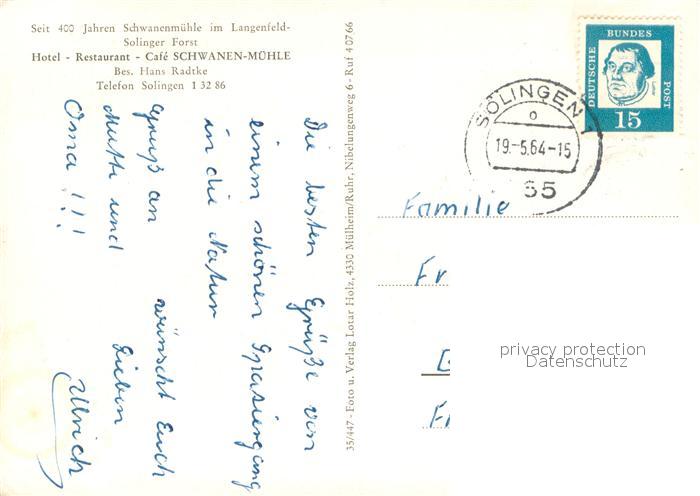 Seit 400 Jahren Schwanenmühle im Langenfeld-
Solinger Forst
Hotel - Restaurant - Café SCHWANEN-MÜHLE
Bes. Hans Radtke
Telefon Solingen 1 32 86
Die besten Grüße von
einem schönen Spaziergang
in die Natur
wünscht Euch
Gruß an
Mutti und
Lieben
Oma!!!
Ulrich
35/447 - Foto u. Verlag Lotar Holz, 4330 Mülheim/Ruhr, Nibelungenweg 6 - Ruf 4 07 66
DEUTSCHE
BUNDES
POST
15
SOLINGEN 1
o
19.-5.64-15
Familie
Fr
privacy protection
Datenschutz